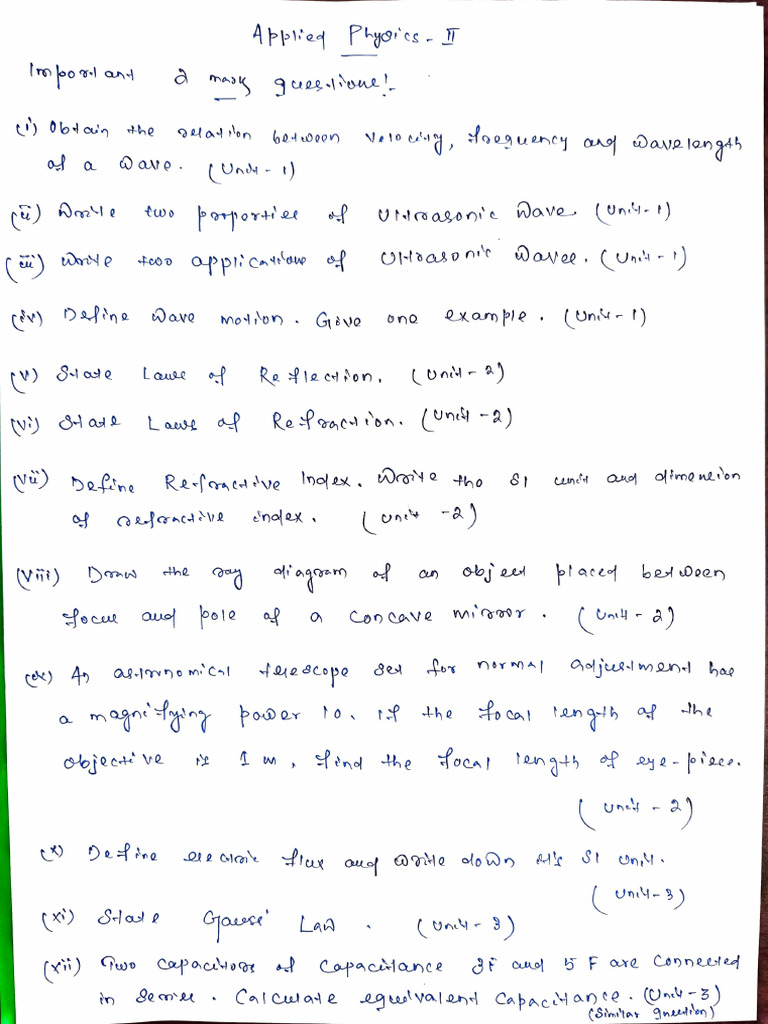 Applied Physics - II
Important 2 mark questions!-
(i) Obtain the relation between velocity, frequency and wavelength
of a wave. (Unit - 1)
(ii) Write two properties of Ultrasonic Wave. (Unit - 1)
(iii) Write two applications of Ultrasonic Waves. (Unit - 1)
(iv) Define Wave motion. Give one example. (Unit - 1)
(v) State Laws of Reflection. (Unit - 2)
(vi) State Laws of Refraction. (Unit - 2)
(vii) Define Refractive Index. Write the SI unit and dimension
of refractive index. (Unit - 2)
(viii) Draw the ray diagram of an object placed between
focus and pole of a concave mirror. (Unit - 2)
(ix) An astronomical telescope set for normal adjustment has
a magnifying power 10. If the focal length of the
objective is 1 m, find the focal length of eye-piece.
(Unit - 2)
(x) Define electric flux and write down it's SI Unit.
(Unit - 3)
(xi) State Gauss' Law. (Unit - 3)
(xii) Two capacitors of capacitance 3F and 5 F are connected
in series. Calculate equivalent capacitance. (Unit - 3)
(Similar question)